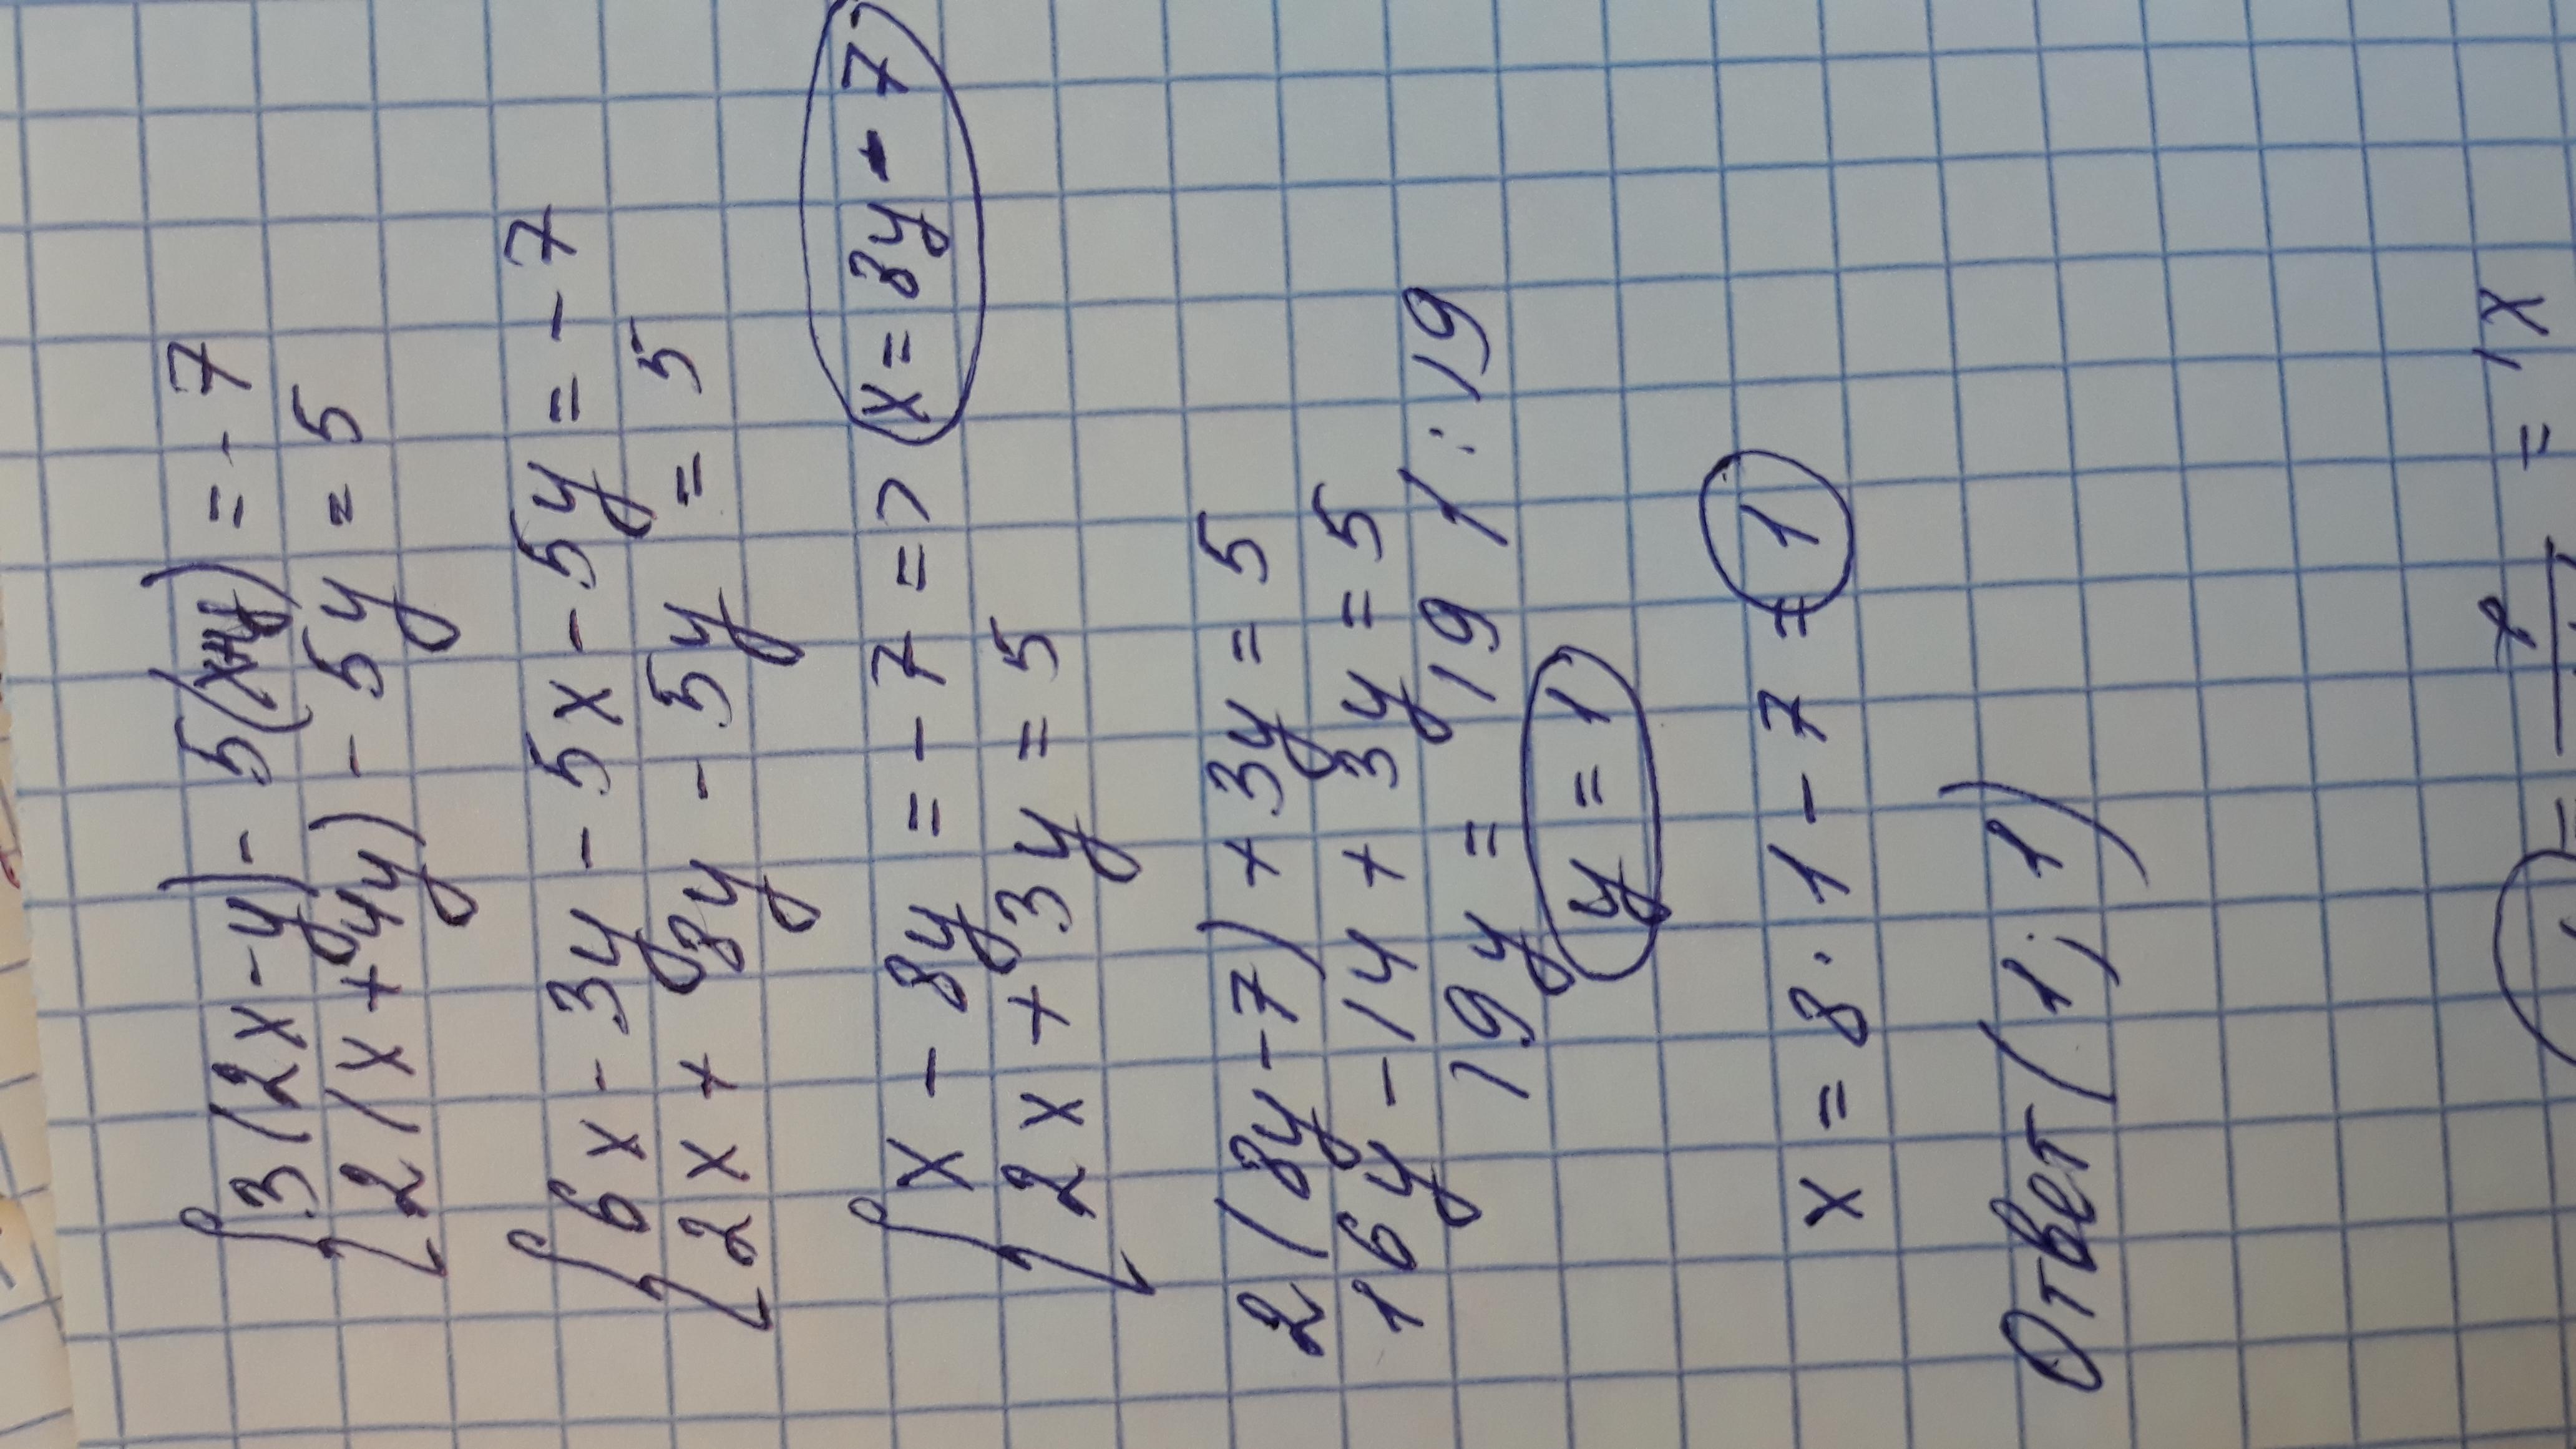 3(2x-y)-5(x+y)=-7
2(x+4y)-5y=5
6x-3y-5x-5y=-7
2x+8y-5y=5
x-8y=-7=>x=8y-7
2x+3y=5
2(8y-7)+3y=5
16y-14+3y=5
19y=19/:19
y=1
x=8·1-7=1
Ответ(1;1)